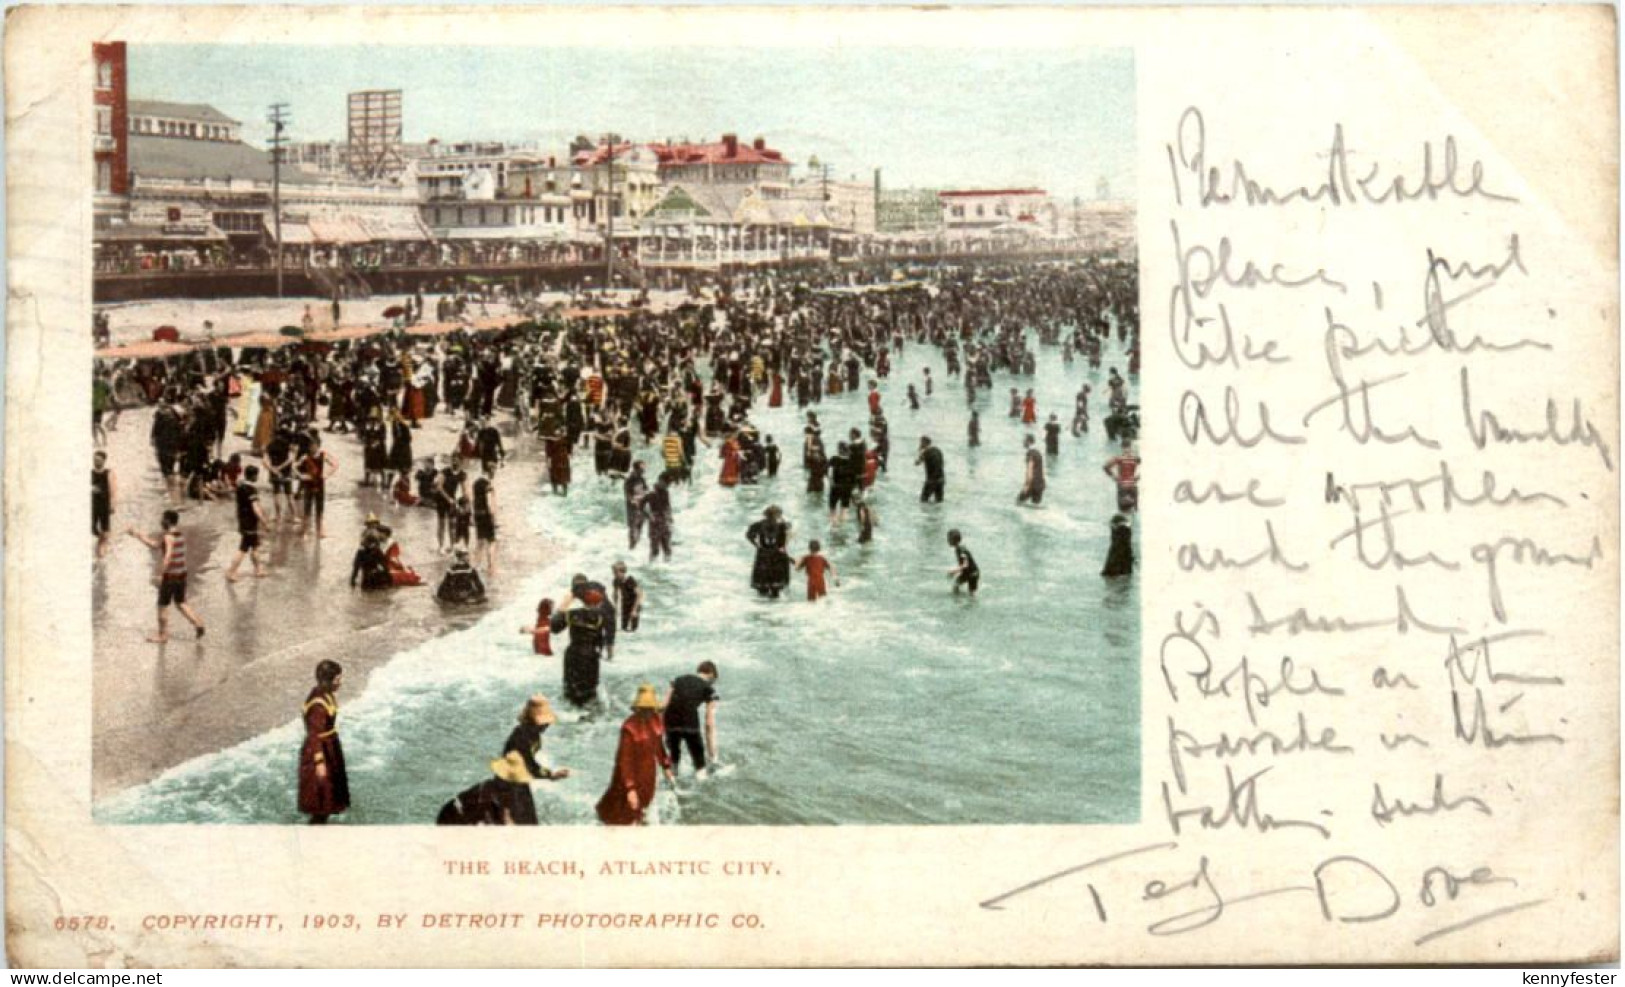 Remarkable
place, just
like picture
All the buildgs
are wooden.
and the ground
is sand.
People on the
parade in their
bathing suits.
Ted Dove.
THE BEACH, ATLANTIC CITY.
6578. COPYRIGHT, 1903, BY DETROIT PHOTOGRAPHIC CO.
www.delcampe.net
kennyfester